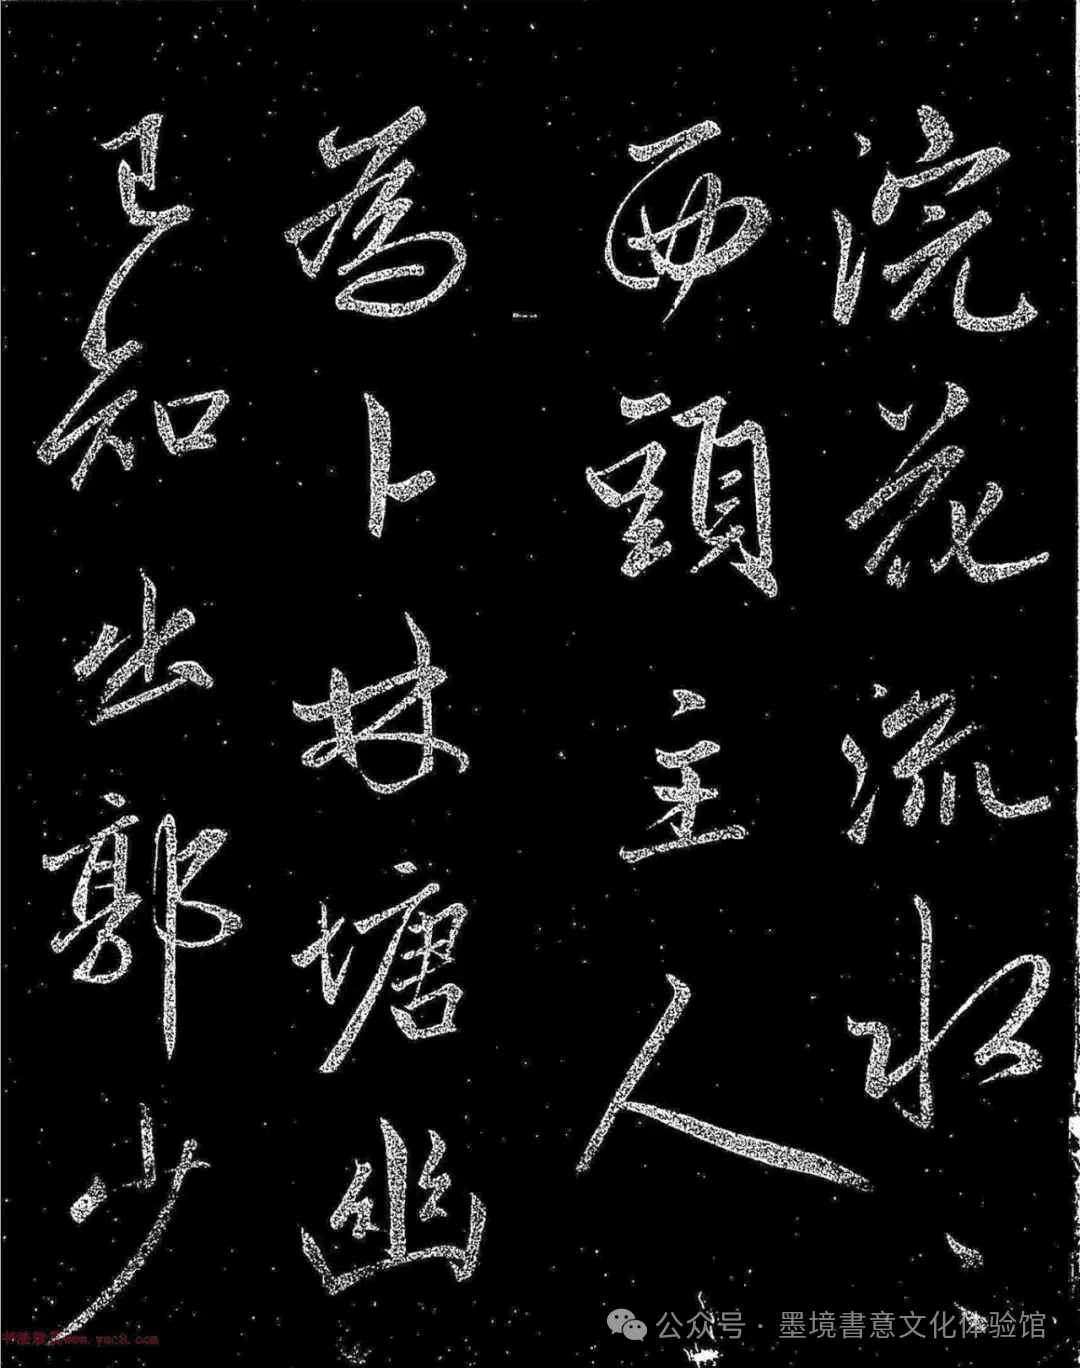 浣花流水〻
西頭主人
為卜林塘幽
已知出郭少
公众号 · 墨境書意文化体验馆
www.yac8.com